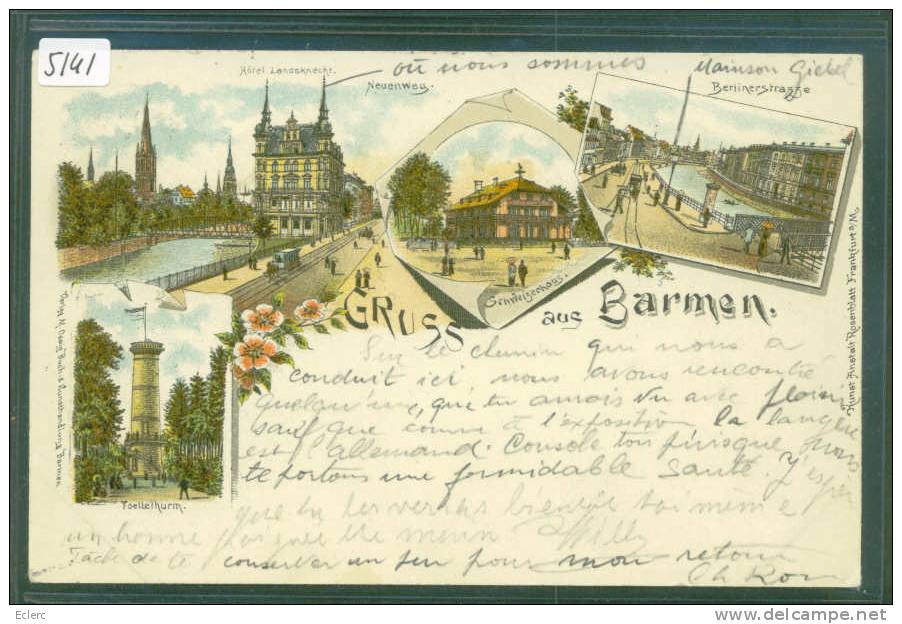 5141
Hôtel Landsknecht.
où nous sommes
Neuenweg.
Mainson Giebel
Berlinerstrasse
Schweizerhaus.
Gruss aus Barmen.
Toelleturm.
Kunst Anstalt Rosenblatt Frankfurt a/M.
Sur le chemin qui nous a
conduit ici, nous avons rencontré
quelqu'une, que tu aurais vu avec plaisir
sauf que comme à l'exposition la langue
est l'allemand. Console toi puisque nous
te portons une formidable santé J'espère
que tu les verras bientôt toi même
un homme
Willy
Tache de te conserver un peu pour mon retour
Ch
Eclerc
www.delcampe.net